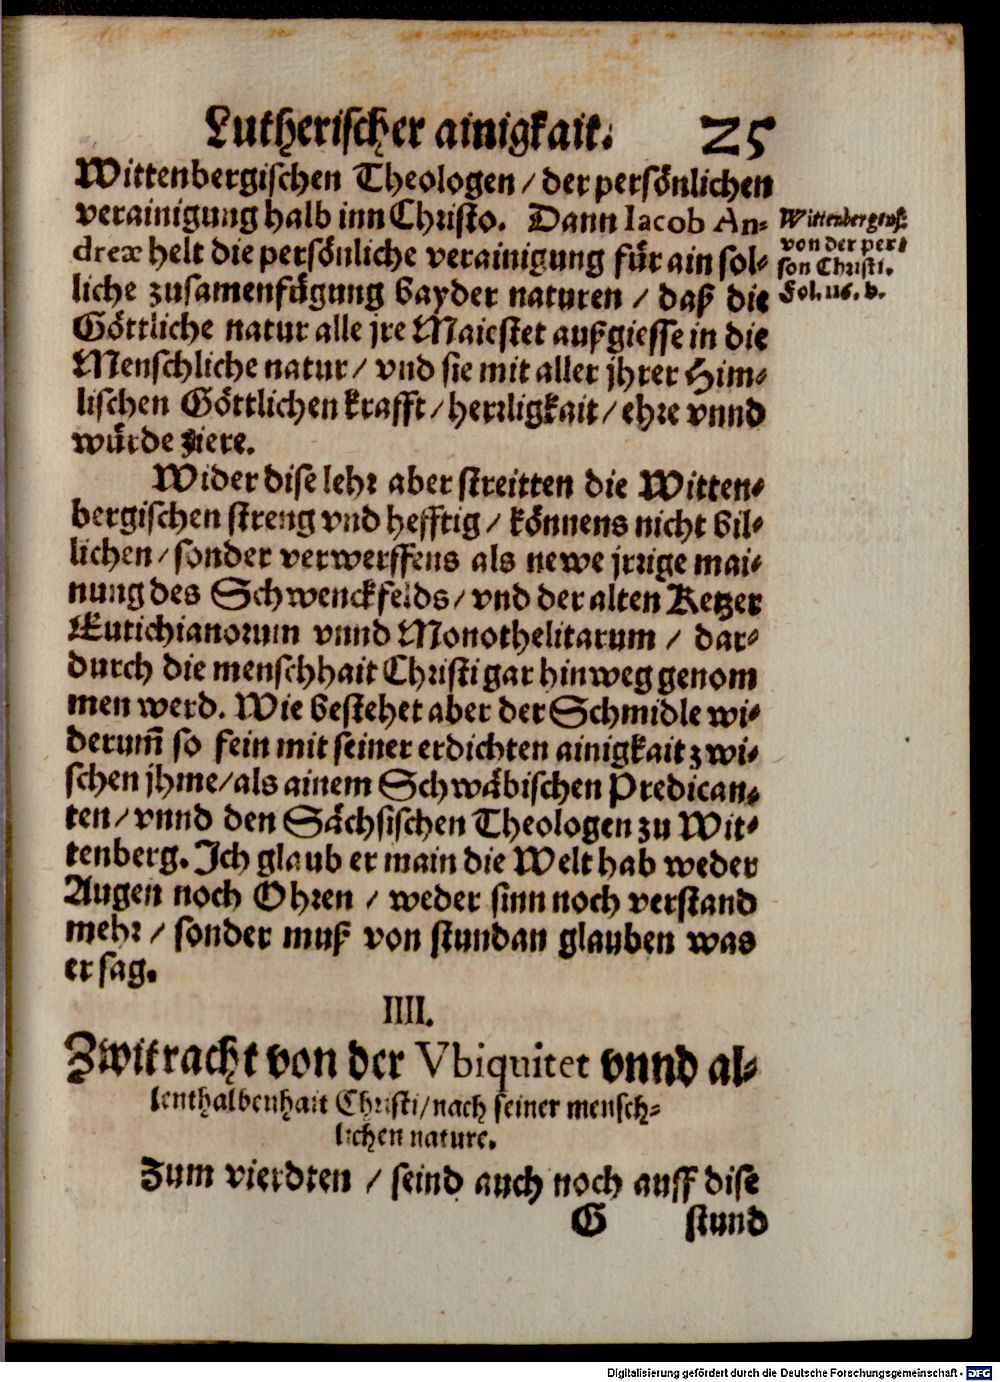 Lutherischer ainigkait. 25
Wittenbergischen Theologen / der persönlichen
verainigung halb inn Christo. Dann Iacob An-
dreæ helt die persönliche verainigung für ain sol-
liche zusamenfůgung bayder naturen / daß die
Göttliche natur alle jre Maiestet außgiesse in die
Menschliche natur / vnd sie mit aller jhrer Him-
lischen Göttlichen krafft / herrligkait / ehre vnnd
würde ziere.
Wittenberg
von der per-
son Christi.
Fol. 116. b.
Wider dise lehr aber streitten die Witten-
bergischen streng vnd hefftig / können​s nicht bil-
lichen / sonder verwerffens als newe jrrige mai-
nung des Schwenckfelds / vnd der alten Ketzer
Eutichianorum vnnd Monothelitarum / dar-
durch die menschhait Christi gar hinweg genom
men werd. Wie bestehet aber der Schmidle wi-
derum̃ so fein mit seiner erdichten ainigkait zwi-
schen jhme / als ainem Schwäbischen Predican-
ten / vnnd den Sächsischen Theologen zu Wit-
tenberg. Ich glaub er main die Welt hab weder
Augen noch Ohren / weder sinn noch verstand
mehr / sonder muß von stundan glauben was
er sag.
IIII.
Zwitracht von der Vbiquitet vnnd al-
lenthalbenhait Christi / nach seiner mensch-
lichen nature.
Zum vierdten / seind auch noch auff dise
G stund
Digitalisierung gefördert durch die Deutsche Forschungsgemeinschaft - DFG